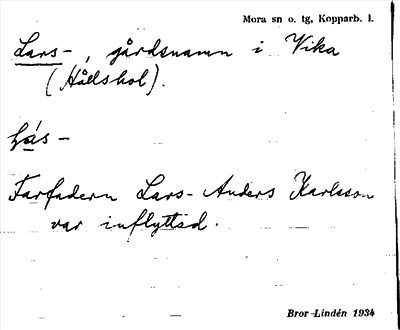 Mora sn o. tg, Kopparb. l.
Lars-, gårdsnamn i Vika
(Hållshol).
lás-
Farfadern Lars-Anders Karlsson
var inflyttad.
Bror Lindén 1934